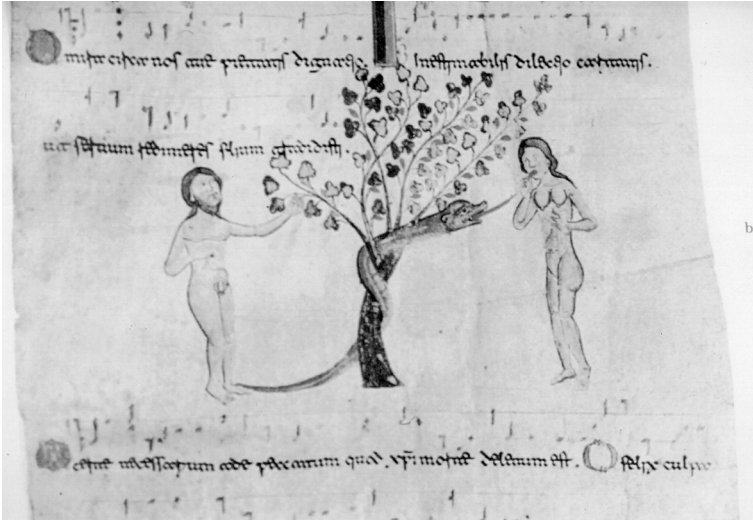 O mira circa nos tue pietatis dignatio. Inestimabilis dilectio caritatis.
ut seruum redimeres filium tradidisti.
b
O certe necessarium ade peccatum quod xpi morte deletum est. O felix culpa